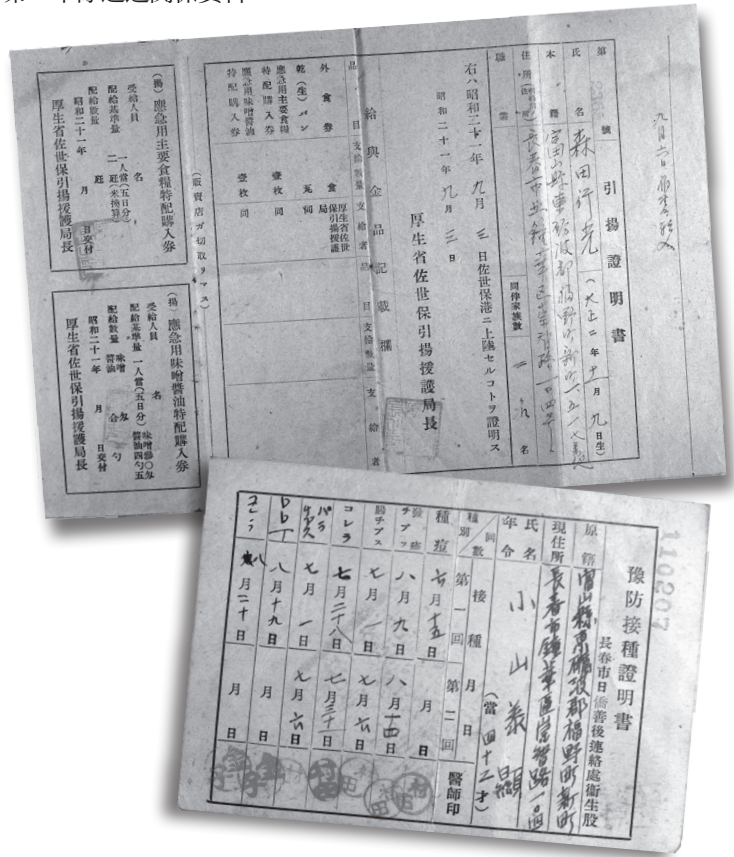 九月六日
引揚證明書
第 號
氏名 森田行光 (大正二年十一月九日生)
本籍 富山縣東礪波郡福野町新町一五一七番地
住所 長春市
職業
同伴家族數 二 名
右ハ昭和二十一年九月三日佐世保港ニ上陸セルコトヲ證明ス
昭和二十一年九月三日
厚生省佐世保引揚援護局長
給與金品記載欄
品目 支給數量 支給者 品目 支給數量 支給者
外食券 食 厚生省佐世保引揚援護局
乾(生)パン 瓦 同
應急用主要食糧特配購入券 壹枚 同
應急用味噌醬油特配購入券 壹枚 同
(販賣店ガ切取リマス)
(揚) 應急用主要食糧特配購入券
受給人員 名
配給基準量 一人當(五日分) 二瓩(米換算)
配給數量 瓩
昭和二十一年 月 日交付
厚生省佐世保引揚援護局長
(揚) 應急用味噌醬油特配購入券
受給人員 名
配給基準量 一人當(五日分) 味噌 醬油四勺五
配給數量 味噌 匁 醬油 合 勺
昭和二十一年 月 日交付
厚生省佐世保引揚援護局長
110207
豫防接種證明書
長春市日僑善後連絡處衛生股
原籍 富山縣東礪波郡福野町新町
現住所 長春市鐘華區崇智路一〇四
氏名 小山義顯
年令 (當四十二才)
種別/回數 接種月日 第一回 第二回 醫師印
種痘 六月十五日 月 日
發疹チブス 八月九日 八月十四日
腸チブス 七月一日 七月六日
コレラ 七月二十八日 七月三十一日
パラチブス 七月一日 七月六日
DDT 八月十九日 月 日
八月二十日 月 日